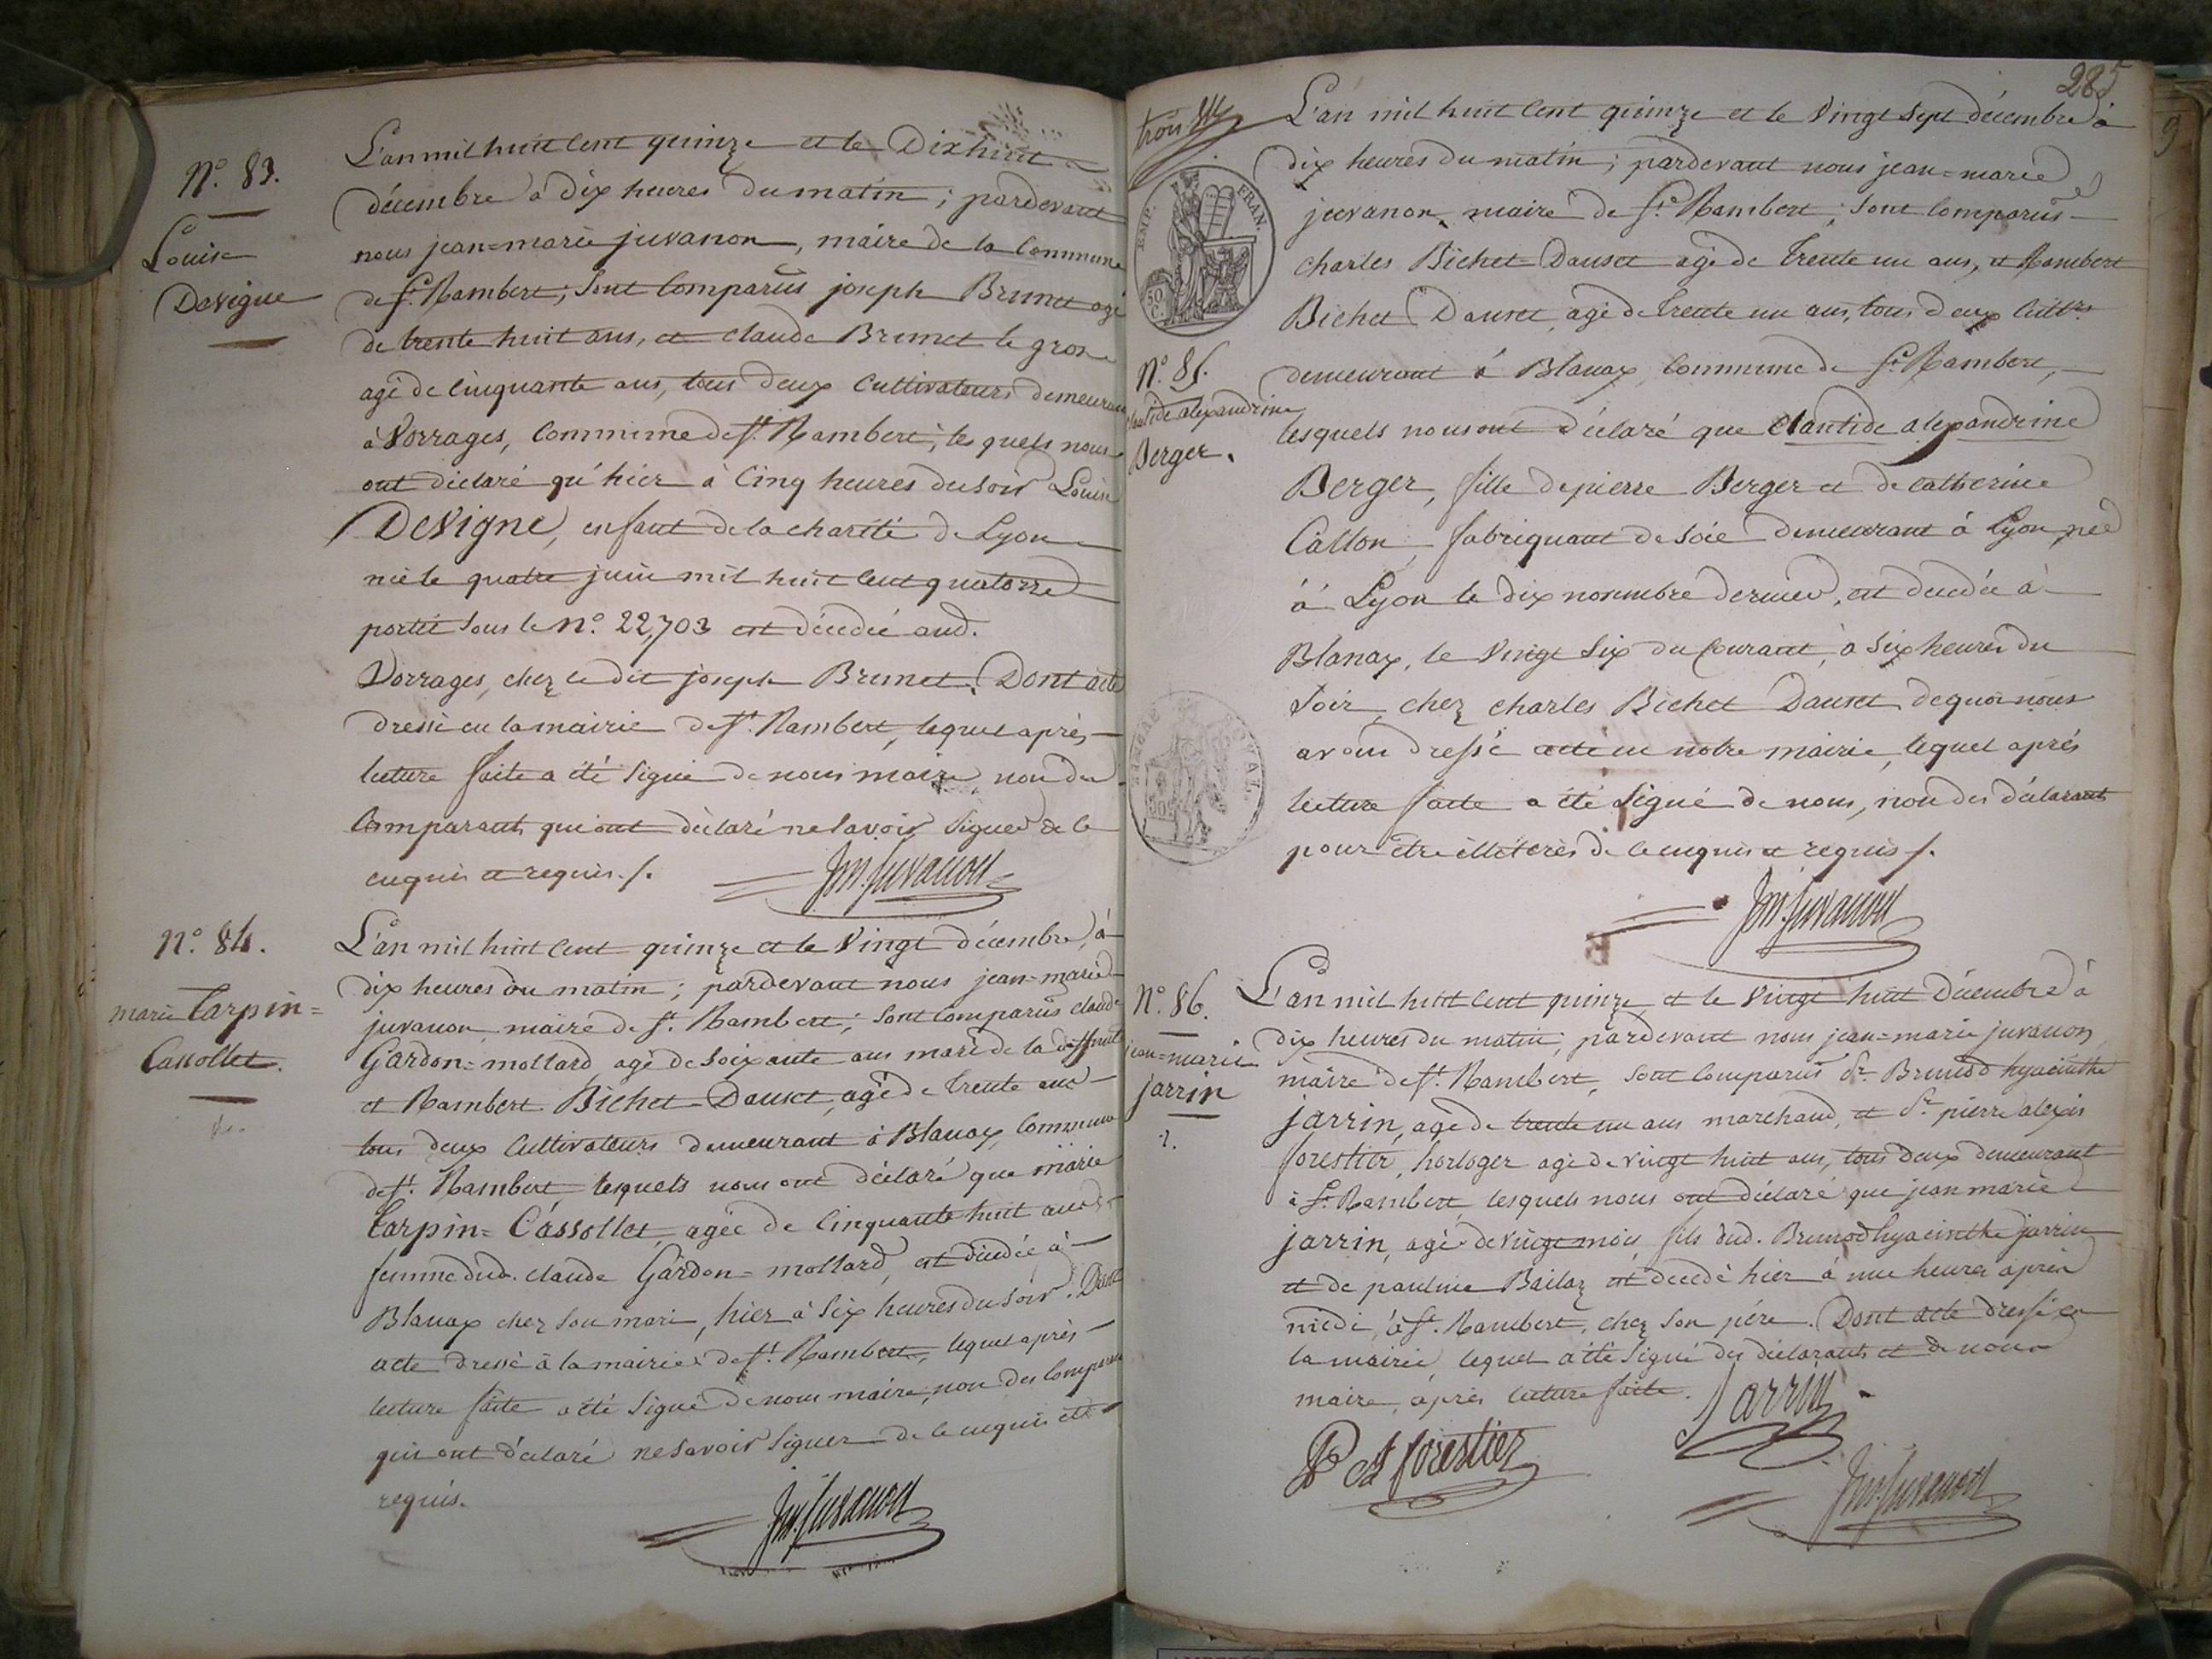 N.º 83.
Louise
Devigne
L'an mil huit cent quinze et le Dix huit
décembre à dix heures du matin ; pardevant
nous jean=marie juvanon, maire de la Commune
de St. Rambert ; sont comparus joseph Brunet agé
de trente huit ans, et claude Brunet le gros
agé de cinquante ans, tous deux cultivateurs demeurant
à Vorrages, Commune de St. Rambert ; les quels nous
ont déclaré qu'hier à cinq heures du soir Louise
DeVigne, enfant de la charité de Lyon
née le quatre juin mil huit cent quatorze
portée sous le N.º 22,703 est décédée aud.
Vorrages, chez le dit joseph Brunet. Dont acte
dressé en la mairie de St. Rambert, lequel après
lecture faite a été signé de nous maire, non des
comparants qui ont déclaré ne savoir signer de ce
enquis et requis ./.
Jm. Juvanon
N.º 84.
marie Carpin=
Cassollet.
L'an mil huit cent quinze et le Vingt décembre, à
dix heures du matin ; pardevant nous jean=marie
juvanon, maire de St. Rambert ; sont comparus claude
Gardon=mollard agé de soixante ans mari de la deffunte
et Rambert Bichet Dauset, agé de trente ans
tous deux cultivateurs demeurant à Blanax, commune
de St. Rambert lesquels nous ont déclaré que marie
Carpin=Cassollet, agée de cinquante huit ans
femme dud. claude Gardon=mollard, est décédée à
Blanax chez son mari, hier à six heures du soir. Dont
acte dressé à la mairie de St. Rambert, lequel après
lecture faite a été signé de nous maire, non des comparants
qui ont déclaré ne savoir signer de ce enquis et
requis.
Jm. Juvanon
285
9
EMP. FRAN.
50 C.
ROYAL
N.º 85.
clantide alexandrine
Berger.
L'an mil huit cent quinze et le Vingt sept décembre à
dix heures du matin ; pardevant nous jean=marie
juvanon, maire de St. Rambert ; sont comparus
charles Bichet Dauset agé de trente un ans, et Rambert
Bichet Dauset, agé de trente un ans, tous deux cultrs
demeurant à Blanax, commune de St. Rambert,
lesquels nous ont déclaré que clantide alexandrine
Berger, fille de pierre Berger et de catherine
Callon, fabriquant de soie demeurant à Lyon, née
à Lyon le dix novembre dernier, est décédée à
Blanax, le Vingt six du courant, à six heures du
soir, chez charles Bichet Dauset, de quoi nous
avons dressé acte en notre mairie, lequel après
lecture faite a été signé de nous, non des déclarants
pour être illéterés de ce enquis et requis ./.
Jm. Juvanon
N.º 86.
jean=marie
jarrin
L'an mil huit cent quinze, et le vingt huit décembre à
dix heures du matin ; pardevant nous jean=marie juvanon
maire de St. Rambert, sont comparus Sr. Brunod hyacinthe
jarrin, agé de trente un ans marchand, et Sr. pierre alexis
forestier, horloger agé de vingt huit ans, tous deux demeurant
à St. Rambert, lesquels nous ont déclaré que jean marie
jarrin, agé de vingt mois, fils dud. Brunod hyacinthe jarrin
et de pauline Bailaz est décédé hier à une heure après
midi, à St. Rambert, chez son père. Dont acte dressé en
la mairie, lequel a été signé des déclarants et de nous
maire, après lecture faite.
Jarrin
P A forestier
Jm. Juvanon